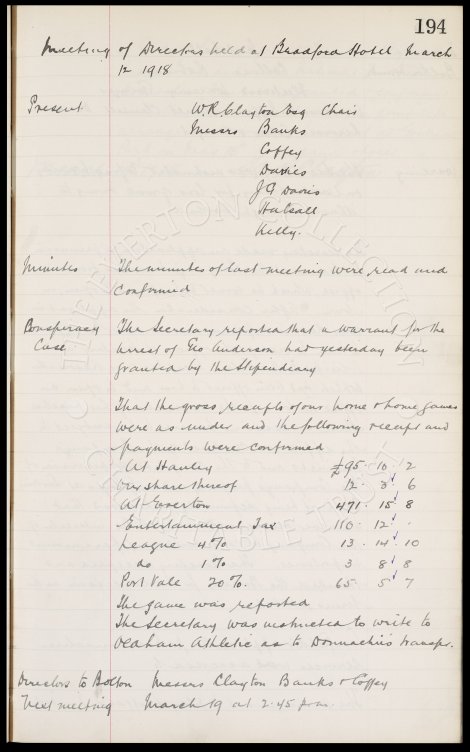 194
Meeting of Directors held at Bradford Hotel March
12 1918
Present W.R. Clayton Esq Chair
Messrs Banks
Coffey
Davies
J G Davis
Halsall
Kelly.
Minutes The minutes of last meeting were read and
confirmed
Conspiracy The Secretary reported that a warrant for the
Case arrest of Geo Anderson had yesterday been
granted by the Stipendiary
That the gross receipts of our home & home games
were as under and the following receipt and
payments were confirmed
At Hanley £95 . 10 . 2
Our share thereof 12 . 3 . 6
At Everton 471 . 15 . 8
Entertainment Tax 110 . 12 .
League 4% 13 . 14 . 10
do 1% 3 . 8 . 8
Port Vale 20%. 65 . 5 . 7
The game was reported
The Secretary was instructed to write to
Oldham Athletic as to Donnachie's transfer.
Directors to Bolton Messrs Clayton Banks & Coffey
Next meeting March 19 at 2.45 pm.
THE EVERTON COLLECTION
CHARITABLE TRUST